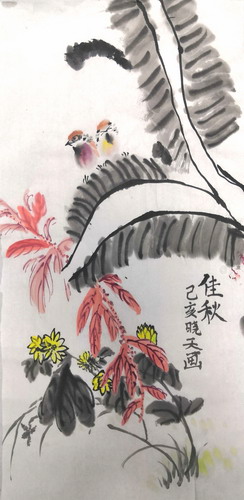 佳秋
己亥晓天画